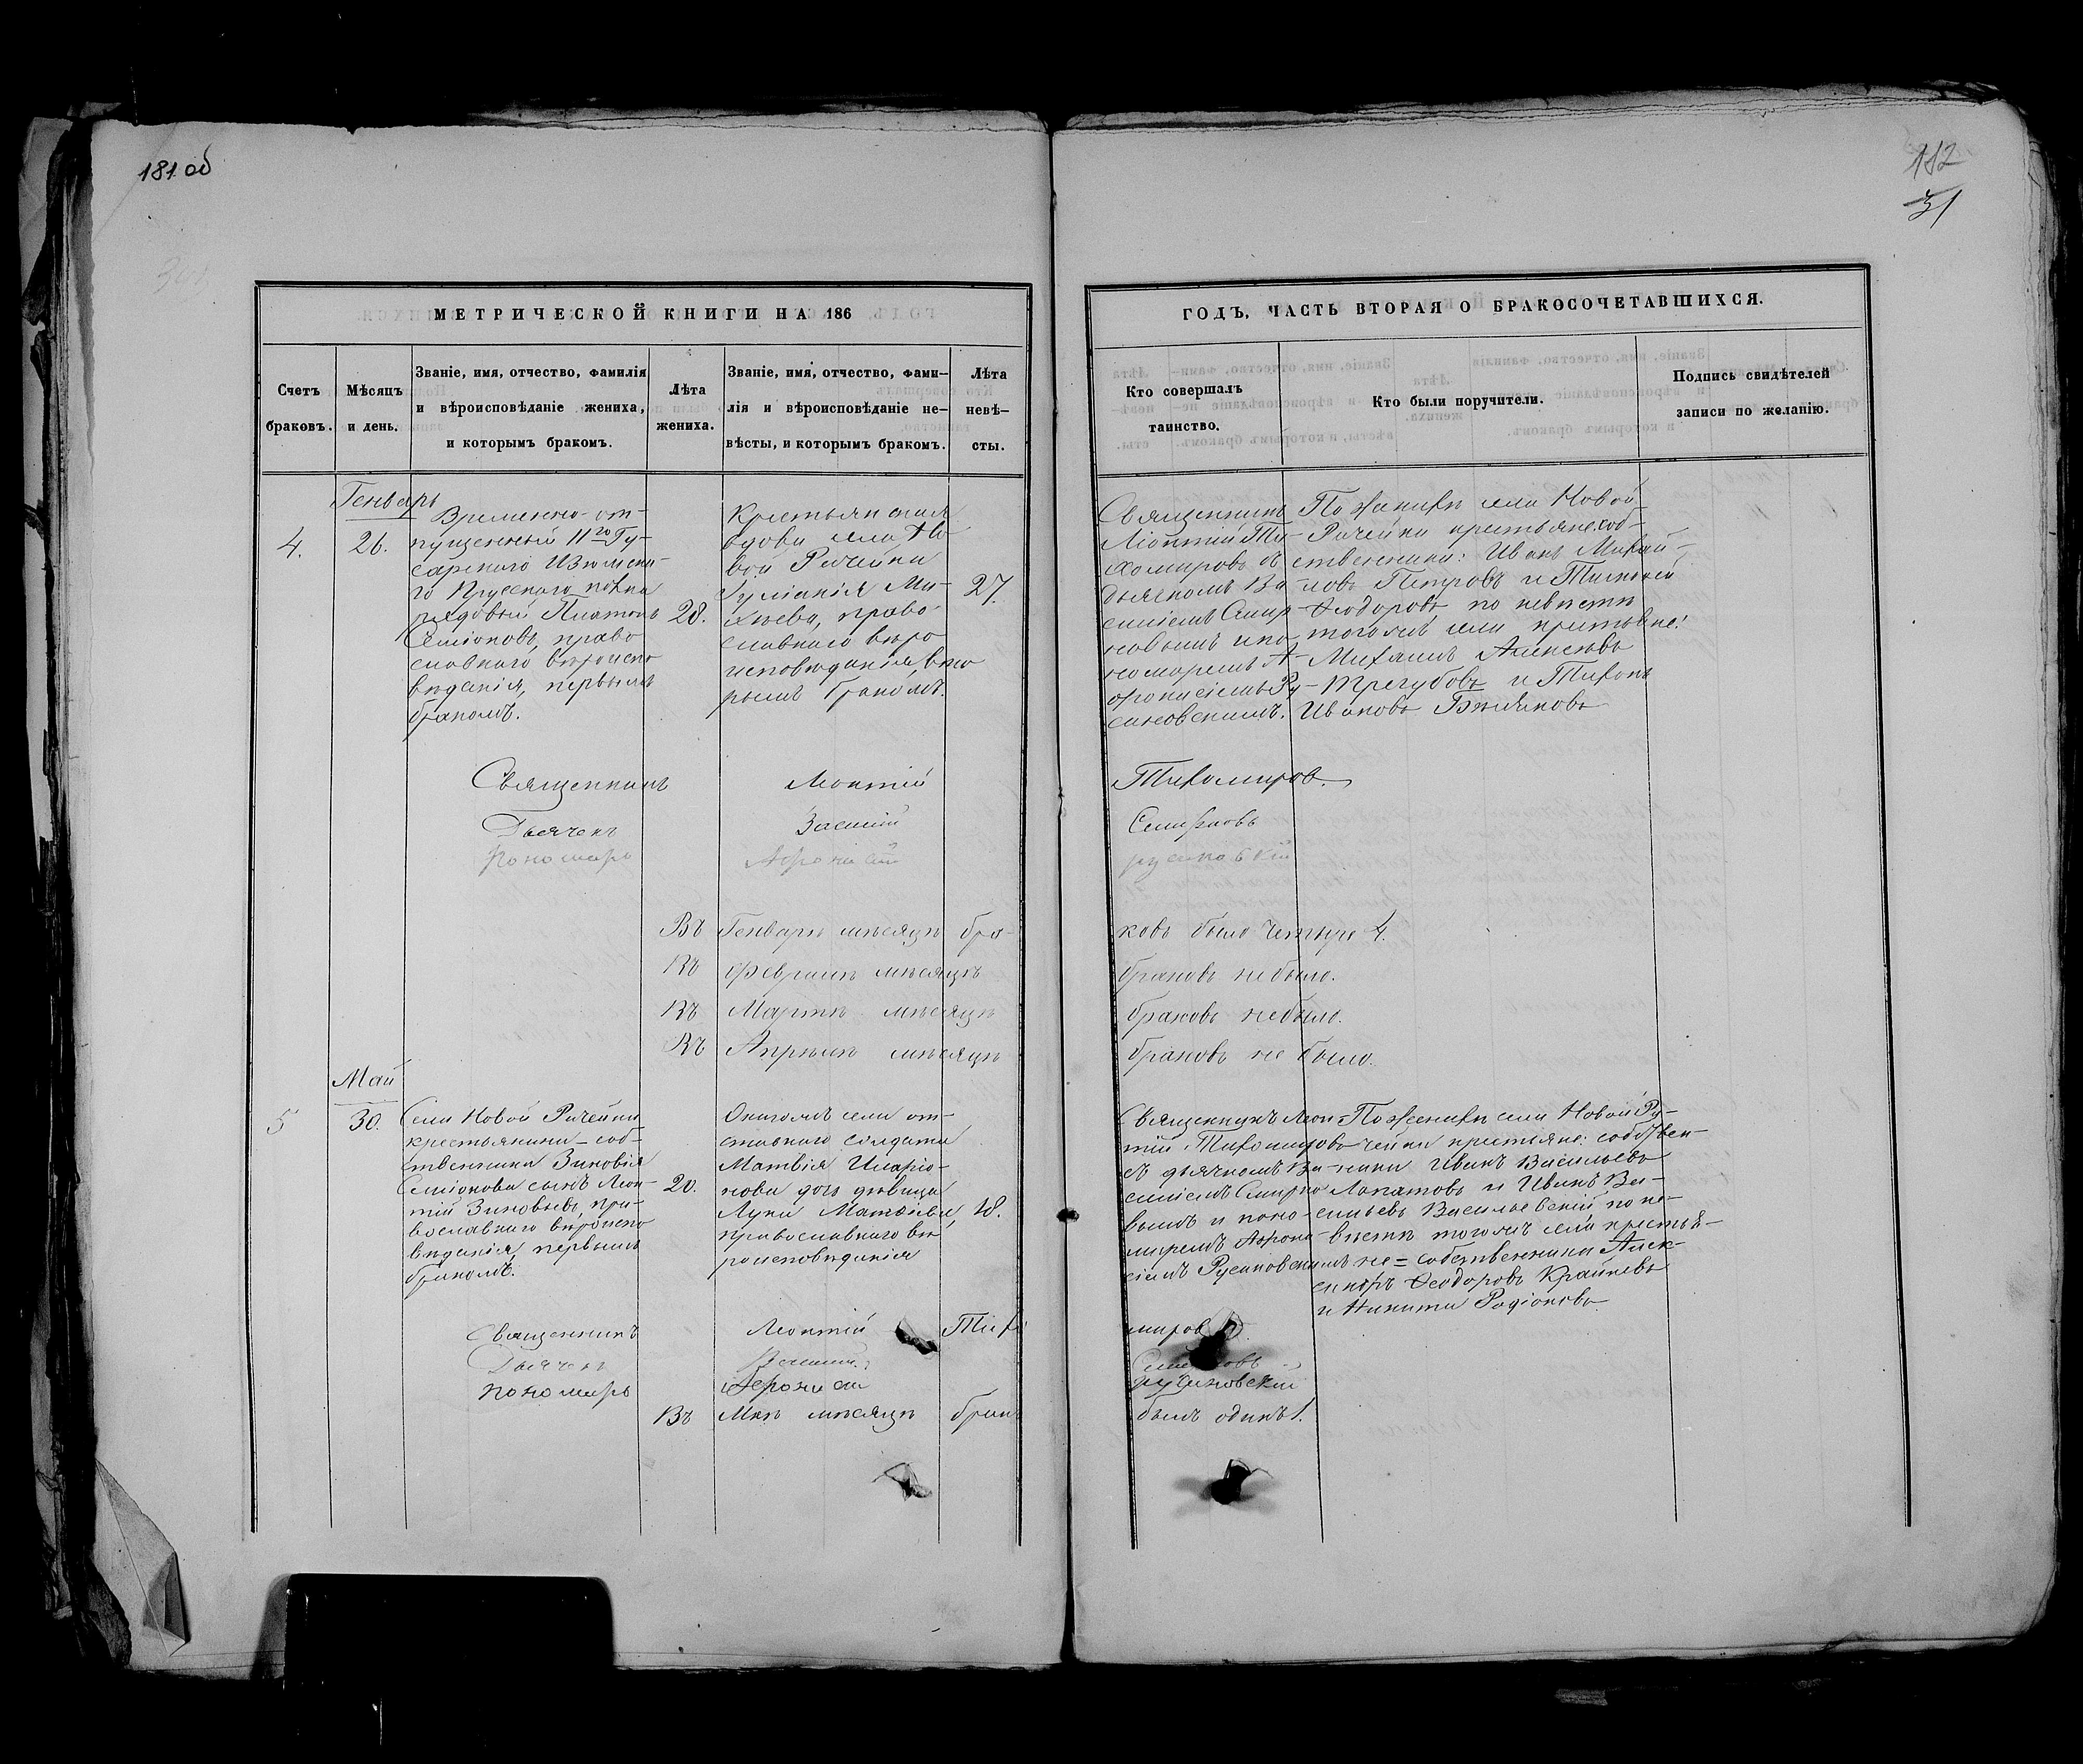 181 об
182
31
МЕТРИЧЕСКОЙ КНИГИ НА 186
ГОДЪ, ЧАСТЬ ВТОРАЯ О БРАКОСОЧЕТАВШИХСЯ.
Счетъ
браковъ.
Мѣсяцъ
и день.
Званіе, имя, отчество, фамилія
и вѣроисповѣданіе жениха,
и которымъ бракомъ.
Лѣта
жениха.
Званіе, имя, отчество, фами-
лія и вѣроисповѣданіе не-
вѣсты, и которымъ бракомъ.
Лѣта
невѣ-
сты.
Кто совершалъ
таинство.
Кто были поручители.
Подпись свидѣтелей
записи по желанію.
Генварь
4.
26.
Временно-от-
пущенный 11го Гу-
сарскаго Изюмска-
го Прусскаго полка
рядовый Платонъ
Симіоновъ, право
славнаго вѣроиспо
вѣданія, первымъ
бракомъ.
28.
Крестьянская
вдова села Но
вой Рачейки
Ми-
хѣева, право
славнаго вѣро
исповѣданія, вто
рымъ бракомъ.
27.
Священникъ
Леонтій Ти-
хомировъ съ
дьячкомъ Ва-
силіемъ Смир-
новымъ и по-
номаремъ А-
фонасіемъ Ру-
синовскимъ.
По женихѣ села Новой
Рачейки крестьяне соб-
ственники: Иванъ Михай-
ловъ Петровъ и Тимофей
Ѳеодоровъ по невѣстѣ
тогожъ села крестьяне:
Михаилъ Алексѣевъ
Трегубовъ и Тихонъ
Ивановъ
Священникъ Леонтій Тихомировъ
Дьячекъ Василій Смирновъ
Пономарь Афонасій Русиновскій
Въ Генварѣ мѣсяцѣ бра-
ковъ было четыре 4.
Въ Февралѣ мѣсяцѣ браковъ не было.
Въ Мартѣ мѣсяцѣ браковъ не было.
Въ Апрѣлѣ мѣсяцѣ браковъ не было.
Май
5
30.
Села Новой Рачейки
крестьянина-соб-
ственника Зиновія
Симіонова сынъ Леон-
тій Зиновьевъ, пра-
вославнаго вѣроиспо
вѣданія, первымъ
бракомъ.
20.
Онагожъ села от-
ставнаго солдата
Матвія Иларіо-
нова дочь дѣвица
Матвѣева,
православнаго вѣ
роисповѣданія
18.
Священникъ Леон-
тій Тихомировъ
съ дьячкомъ Ва-
силіемъ Смирно
вымъ и поно-
маремъ Афона-
сіемъ Русиновскимъ
По женихѣ села Новой Ра-
чейки крестьяне: собствен-
ники Иванъ Васильевъ
Лопатовъ и Иванъ Ва-
сильевъ Васильевскій по не-
вѣстѣ тогожъ села крестья-
не=собственники Алек-
сандръ Ѳеодоровъ Крайневъ
и Никита Родіоновъ.
Священникъ Леонтій Тихомировъ
Дьячекъ Василій Смирновъ
Пономарь Афонасій Русиновскій
Въ Маѣ мѣсяцѣ бракъ былъ одинъ 1.